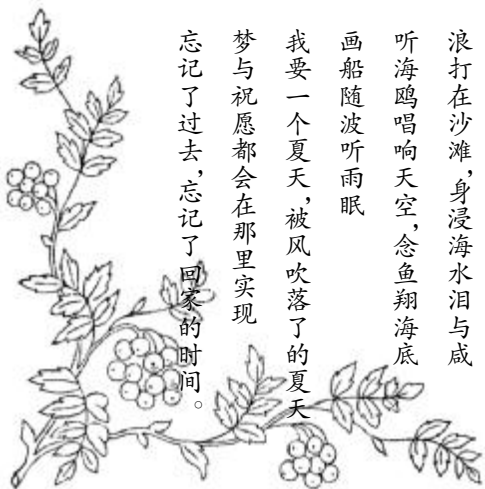 浪打在沙滩，身浸海水泪与咸
听海鸥唱响天空，念鱼翔海底
画船随波听雨眠
我要一个夏天，被风吹落了的夏天
梦与祝愿都会在那里实现
忘记了过去，忘记了回家的时间。